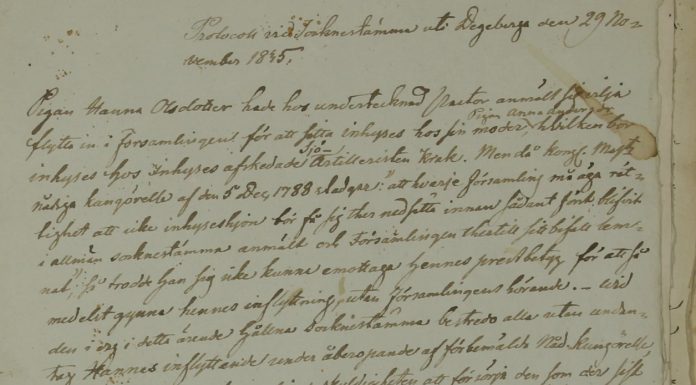 Protocoll vid Socknestämma uti Degeberga den 29 No-
vember 1835.
Pigan Hanna Olsdotter hade hos undertecknad Pastor anmält sig vilja
Pigan Anna
flytta in i Församlingen för att sitta inhyses hos sin moder, hvilken bor
Sjö-
inhyses hos Inhyses afskedade Artilleristen Krak. Men då kongl. Majts
nådiga kungörelse af den 5 Dec, 1788 stadgar: "att hvarje församling må äga rät-
tighet att icke inhyseshjon bör få sig ther nedsätta innan sådant förut blifvit
i allmän socknestämma anmält och Församlingen thertill sitt bifall lem-
nat", så trodde han sig icke kunna emottaga hennes prestbetyg för att så
medelst gynna hennes inflyttning, utan församlingens hörande. – Vid
den i dag i detta ärende hållna socknestämma bestredo alla utan undan-
tag Hannes inflyttande under åberopande af förbemälde Nåd. Kungörelse
att försörja den som der sjelf